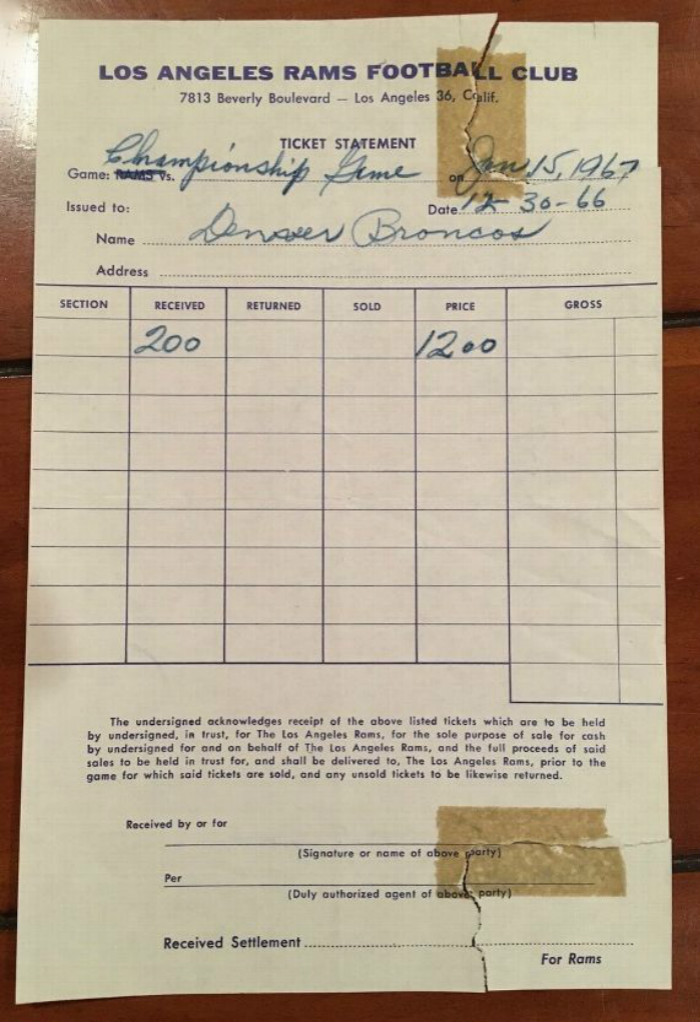 LOS ANGELES RAMS FOOTBALL CLUB
7813 Beverly Boulevard — Los Angeles 36, Calif.
TICKET STATEMENT
Game: RAMS vs. Championship Game on Jan 15, 1967
Issued to: Date 12-30-66
Name Denver Broncos
Address
SECTION RECEIVED RETURNED SOLD PRICE GROSS
200 1200
The undersigned acknowledges receipt of the above listed tickets which are to be held
by undersigned, in trust, for The Los Angeles Rams, for the sole purpose of sale for cash
by undersigned for and on behalf of The Los Angeles Rams, and the full proceeds of said
sales to be held in trust for, and shall be delivered to, The Los Angeles Rams, prior to the
game for which said tickets are sold, and any unsold tickets to be likewise returned.
Received by or for
(Signature or name of above party)
Per
(Duly authorized agent of above party)
Received Settlement
For Rams